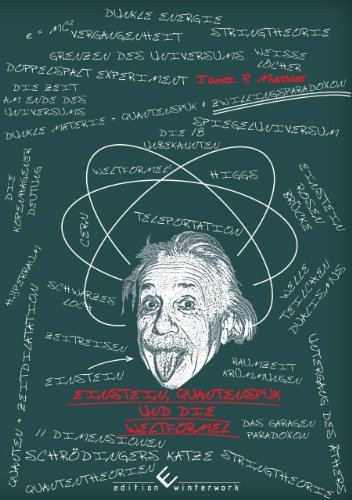 DUNKLE ENERGIE
e = MC²
VERGANGENHEIT
STRINGTHEORIE
GRENZEN DES UNIVERSUMS
WEISSE
LÖCHER
DOPPELSPALT EXPERIMENT
Janick P. Mischler
DIE ZEIT
AM ENDE DES
UNIVERSUMS
DUNKLE MATERIE + QUANTENSPUK + ZWILLINGSPARADOXON
SPIEGELUNIVERSUM
DIE 18
UNBEKANNTEN
DIE
KOPENHAGENER
DEUTUNG
WELTFORMEL
HIGGS
EINSTEIN
ROSEN
BRÜCKE
CERN
TELEPORTATION
HYPERRAUM
SCHWARZES
LOCH
WELLE
TEILCHEN
DUALISMUS
ZEITREISEN
EINSTEIN
RAUMZEIT
KRÜMMUNGEN
UNTERGANG DES ÄTHERS
QUANTEN + ZEITDILATATION
EINSTEIN, QUANTENSPUK
UND DIE
WELTFORMEL
DAS GARAGEN
PARADOXON
11 DIMENSIONEN
SCHRÖDINGERS KATZE
STRINGTHEORIE
QUANTENTHEORIEN
edition winterwork